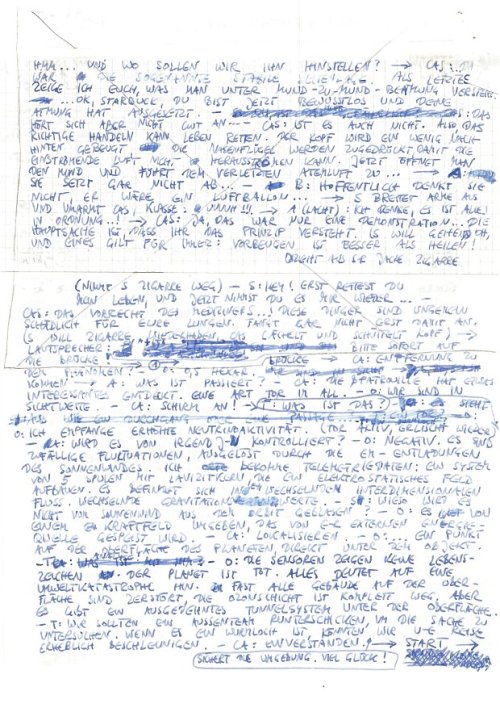 HMM... UND WO SOLLEN WIR IHN HINSTELLEN? → CAS: DA
WAR DIE SOGENANNTE STABILE ALS LETZTE
ZEIGE ICH EUCH, WAS MAN UNTER MUND-ZU-MUND-BEATMUNG VERSTEHT.
...OK, STARBUCK, DU BIST JETZT BEWUSSTLOS UND DEINE
ATMUNG HAT AUSGESETZT. - : DAS
HÖRT SICH ABER NICHT GUT AN... CAS: IST ES AUCH NICHT. ALSO, DAS
RICHTIGE HANDELN KANN LEBEN RETTEN. DER KOPF WIRD EIN WENIG NACH
HINTEN GEBEUGT DIE NASENFLÜGEL WERDEN ZUGEDRÜCKT, DAMIT DIE
EINSTRÖMENDE LUFT NICHT HERAUSSTRÖMEN KANN. JETZT ÖFFNET MAN
DEN MUND UND FÜHRT DEM VERLETZTEN ATEMLUFT ZU ... →
SIE SETZT GAR NICHT AB... - B: HOFFENTLICH DENKT SIE
NICHT ER WÄRE EIN LUFTBALLON... → S BREITET ARME AUS
UND UMARMT CAS KLASSE: → A (LACHT): ICH DENKE, ES IST ALLES
IN ORDNUNG...! → CAS: JA, DAS WAR NUR EINE DEMONSTRATION... DIE
HAUPTSACHE IST, DASS IHR DAS PRINZIP VERSTEHT. IS WILL GEHEN
UND EINES GILT FÜR IMMER: VORBEUGEN IST BESSER ALS HEILEN!
DREHT ALS S JR ZIGARRE
(NIMMT S ZIGARRE WEG) - S: HEY! ERST RETTEST DU
MEIN LEBEN, UND JETZT NIMMST DU ES MIR WIEDER... -
CAS: DAS VORRECHT DES MEDIZINERS...! DIESE DINGER SIND UNGEHEUER
SCHÄDLICH FÜR EURE LUNGEN. FANGT GAR NICHT ERST DAMIT AN.
(S WILL ZIGARRE CAS LÄCHELT UND SCHÜTTELT KOPF) →
LAUTSPRECHER: BITTE SOFORT AUF
DIE BRÜCKE → BRÜCKE → CA: ENTFERNUNG ZU
DEM PHÄNOMEN? - O: 0,5 HEKAR.
KOMMEN → A: WAS IST PASSIERT? - CA: DIE PATROUILLE HAT ETWAS
INTERESSANTES ENTDECKT. EINE ART TOR IM ALL. - O: WIR SIND IN
SICHTWEITE. - CA: SCHIRM AN! → T: WAS IST DAS? SIEHT
AUS WIE EIN DURCHGANG - O:
O: ICH EMPFANGE ERHÖHTE NEUTRINOAKTIVITÄT. (TOR AKTIV, ERLISCHT WIEDER)
- CA: WIRD ES VON IRGENDJ-N KONTROLLIERT? - O: NEGATIV. ES SIND
ZUFÄLLIGE FLUKTUATIONEN, AUSGELÖST DURCH DIE EM-ENTLADUNGEN
DES SONNENWINDES. ICH BEKOMME TELEMETRIEDATEN: EIN SYSTEM
VON 5 SPULEN MIT LAVIZITKERN, DIE EIN ELEKTROSTATISCHES FELD
AUFBAUEN. ES BEFINDET SICH IN WECHSELNDEM INTERDIMENSIONALEN
FLUSS. WECHSELNDE GRAVITATIONSWERTE. - S: WIESO WIRD ES
NICHT VOM SONNENWIND AUS DEM ORBIT GEBLASEN? - O: ES IST VON
EINEM KRAFTFELD UMGEBEN, DAS VON E-R EXTERNEN ENERGIE-
QUELLE GESPEIST WIRD. - CA: LOKALISIEREN. - O: ... EIN PUNKT
AUF DER OBERFLÄCHE DES PLANETEN, DIREKT UNTER DEM OBJEKT.
- O: DIE SENSOREN ZEIGEN KEINE LEBENS-
ZEICHEN AN. DER PLANET IST TOT. ALLES DEUTET AUF EINE
UMWELTKATASTROPHE HIN. FAST ALLE GEBÄUDE AUF DER OBER-
FLÄCHE SIND ZERSTÖRT, DIE OZONSCHICHT IST KOMPLETT WEG, ABER
ES GIBT EIN AUSGEDEHNTES TUNNELSYSTEM UNTER DER OBERFLÄCHE.
- T: WIR SOLLTEN EIN AUSSENTEAM RUNTERSCHICKEN, UM DIE SACHE ZU
UNTERSUCHEN. WENN ES EIN WURMLOCH IST, KÖNNTEN WIR U-E REISE
ERHEBLICH BESCHLEUNIGEN. - CA: EINVERSTANDEN. → START →
SICHERT DIE UMGEBUNG. VIEL GLÜCK!